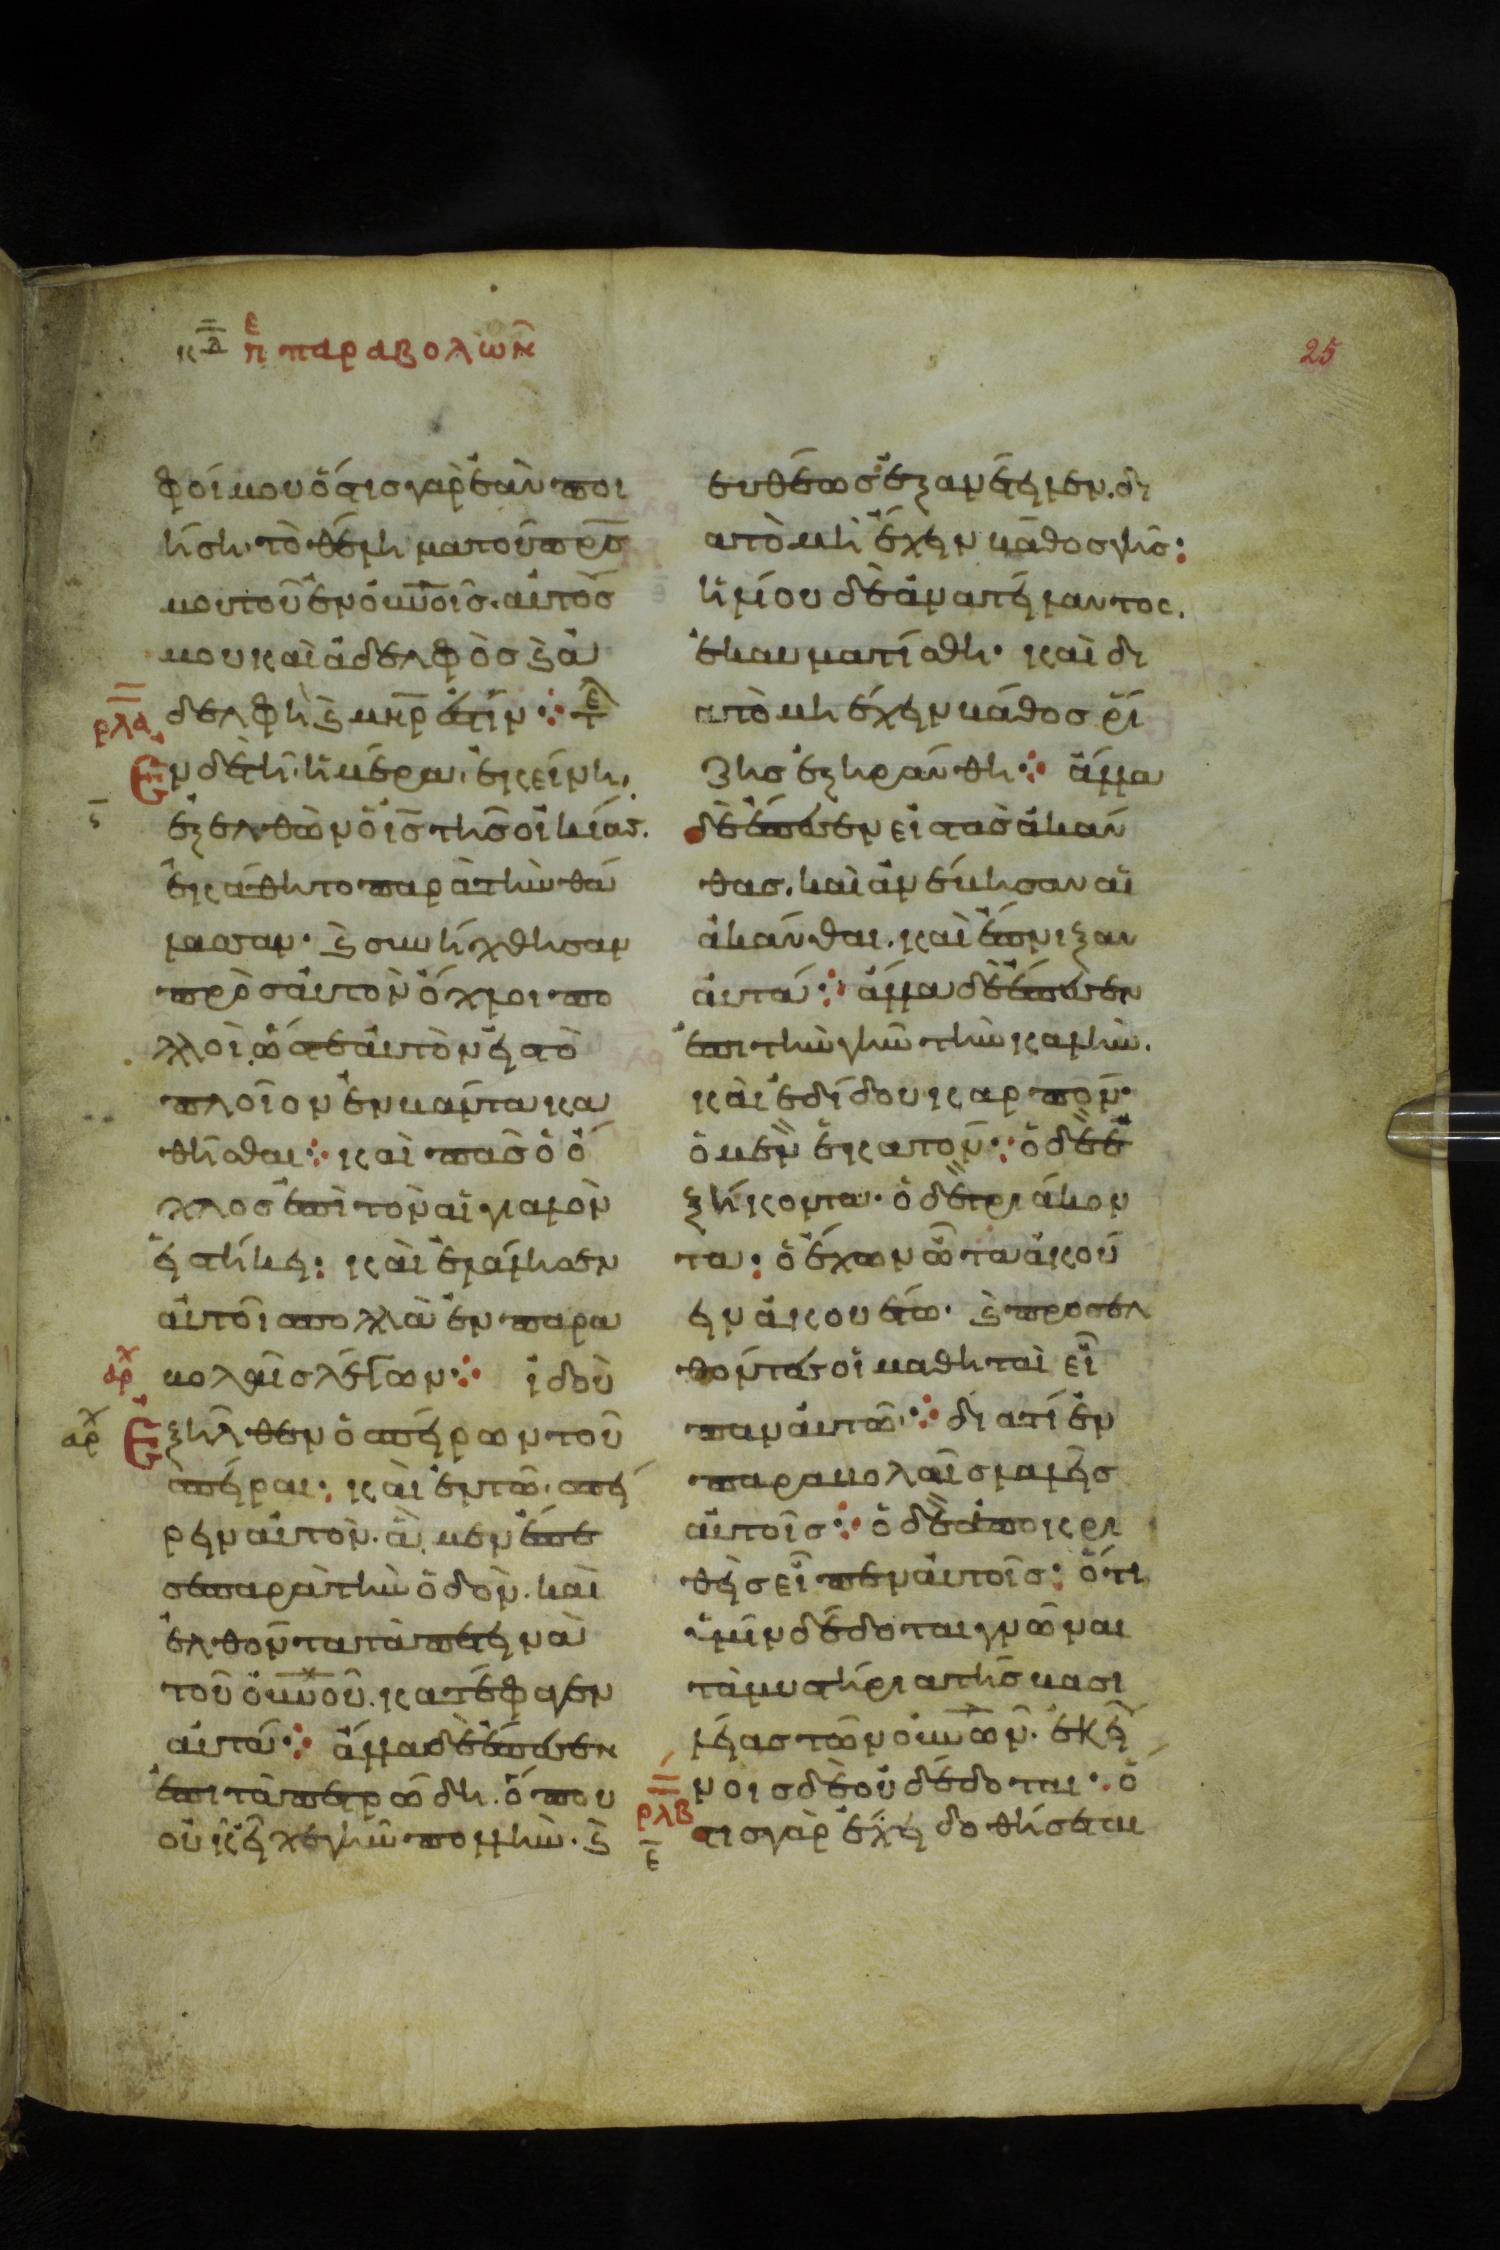 κδ πε παραβολῶν
25
φοί μου ὅστις γὰρ ἐὰν ποι
ήση τὸ θέλημα τοῦ πρς
μου τοῦ ἐν οὐνοῖς. αὐτός
μου καὶ ἀδελφὸς καὶ ἀ
δελφὴ καὶ μηρ ἐστίν· τε
ρλα
Εν δὲ τῆ ἡμέρα ἐκείνη,
ἐξελθὼν ὁ ις τῆς οἰκίας.
ἐκάθητο παρὰ τὴν θά
λασσαν· καὶ συνήχθησαν
πρὸς αὐτὸν ὄχλοι πο
λλοὶ. ὥστε αὐτὸν εἰς τὸ
πλοῖον ἐμβάντα κα
θῆσθαι· καὶ πᾶς ὁ ὄ
χλος ἐπὶ τὸν αἰγιαλὸν
εἱστήκει· καὶ ἐλάλησεν
αὐτοῖς πολλὰ ἐν παρα
βολαῖς λέγων· ἰδοὺ
αρχ
αρχ
Εξῆλθεν ὁ σπείρων τοῦ
σπεῖραι· καὶ ἐν τῶ σπεί
ρειν αὐτὸν. ἃ μὲν ἔπε
σε παρὰ τὴν ὁδὸν. καὶ
ἐλθόντα τὰ πετεινὰ
τοῦ οὐνοῦ. κατέφαγεν
αὐτά· ἄλλα δὲ ἔπεσεν
ἐπὶ τὰ πετρώδη. ὅπου
οὐκ εἶχε γῆν πολλὴν. καὶ
εὐθέως ἐξανέτειλεν. δι
ατὸ μὴ ἔχειν βάθος γῆς·
ἡλίου δὲ ἀνατείλαντος.
ἐκαυματίσθη· καὶ δι
ατὸ μὴ ἔχειν βάθος ῥί
ζης ἐξηράνθη· ἄλλα
δὲ ἔπεσεν εἰς τὰς ἀκάν
θας. καὶ ἀνέβησαν αἱ
ἄκανθαι. καὶ ἔπνιξαν
αὐτά· ἄλλα δὲ ἔπεσεν
ἐπὶ τὴν γῆν τὴν καλὴν.
καὶ ἐδίδου καρπὸν·
ὃ μὲν ἑκατὸν· ὃ δὲ ἑ
ξήκοντα· ὃ δὲ τριάκον
τα· ὁ ἔχων ὦτα ἀκού
ειν ἀκουέτω· καὶ προσελ
θόντες οἱ μαθηταὶ εἶ
παν αὐτῶ· διατί ἐν
παραβολαῖς λαλεῖς
αὐτοῖς· ὁ δὲ ἀποκρι
θεὶς εἶπεν αὐτοῖς· ὅτι
ὑμῖν δέδοται γνῶναι
τὰ μυστήρια τῆς βασι
λείας τῶν οὐνῶν. ἐκεί
νοις δὲ οὐ δέδοται· ὅ
ρλβ
ε
στις γὰρ ἔχει δοθήσεται